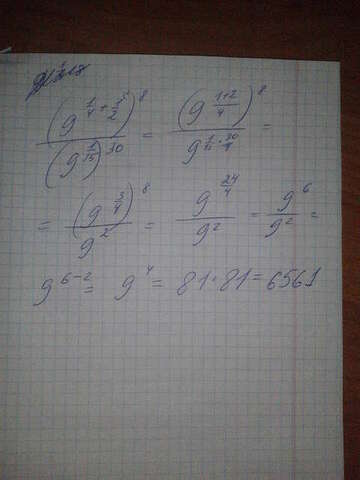 (9^{1/4 + 1/2})^8 / (9^{1/15})^{30} = (9^{(1+2)/4})^8 / 9^{1/15 · 30/1} =
= (9^{3/4})^8 / 9^2 = 9^{24/4} / 9^2 = 9^6 / 9^2 =
9^{6-2} = 9^4 = 81 · 81 = 6561